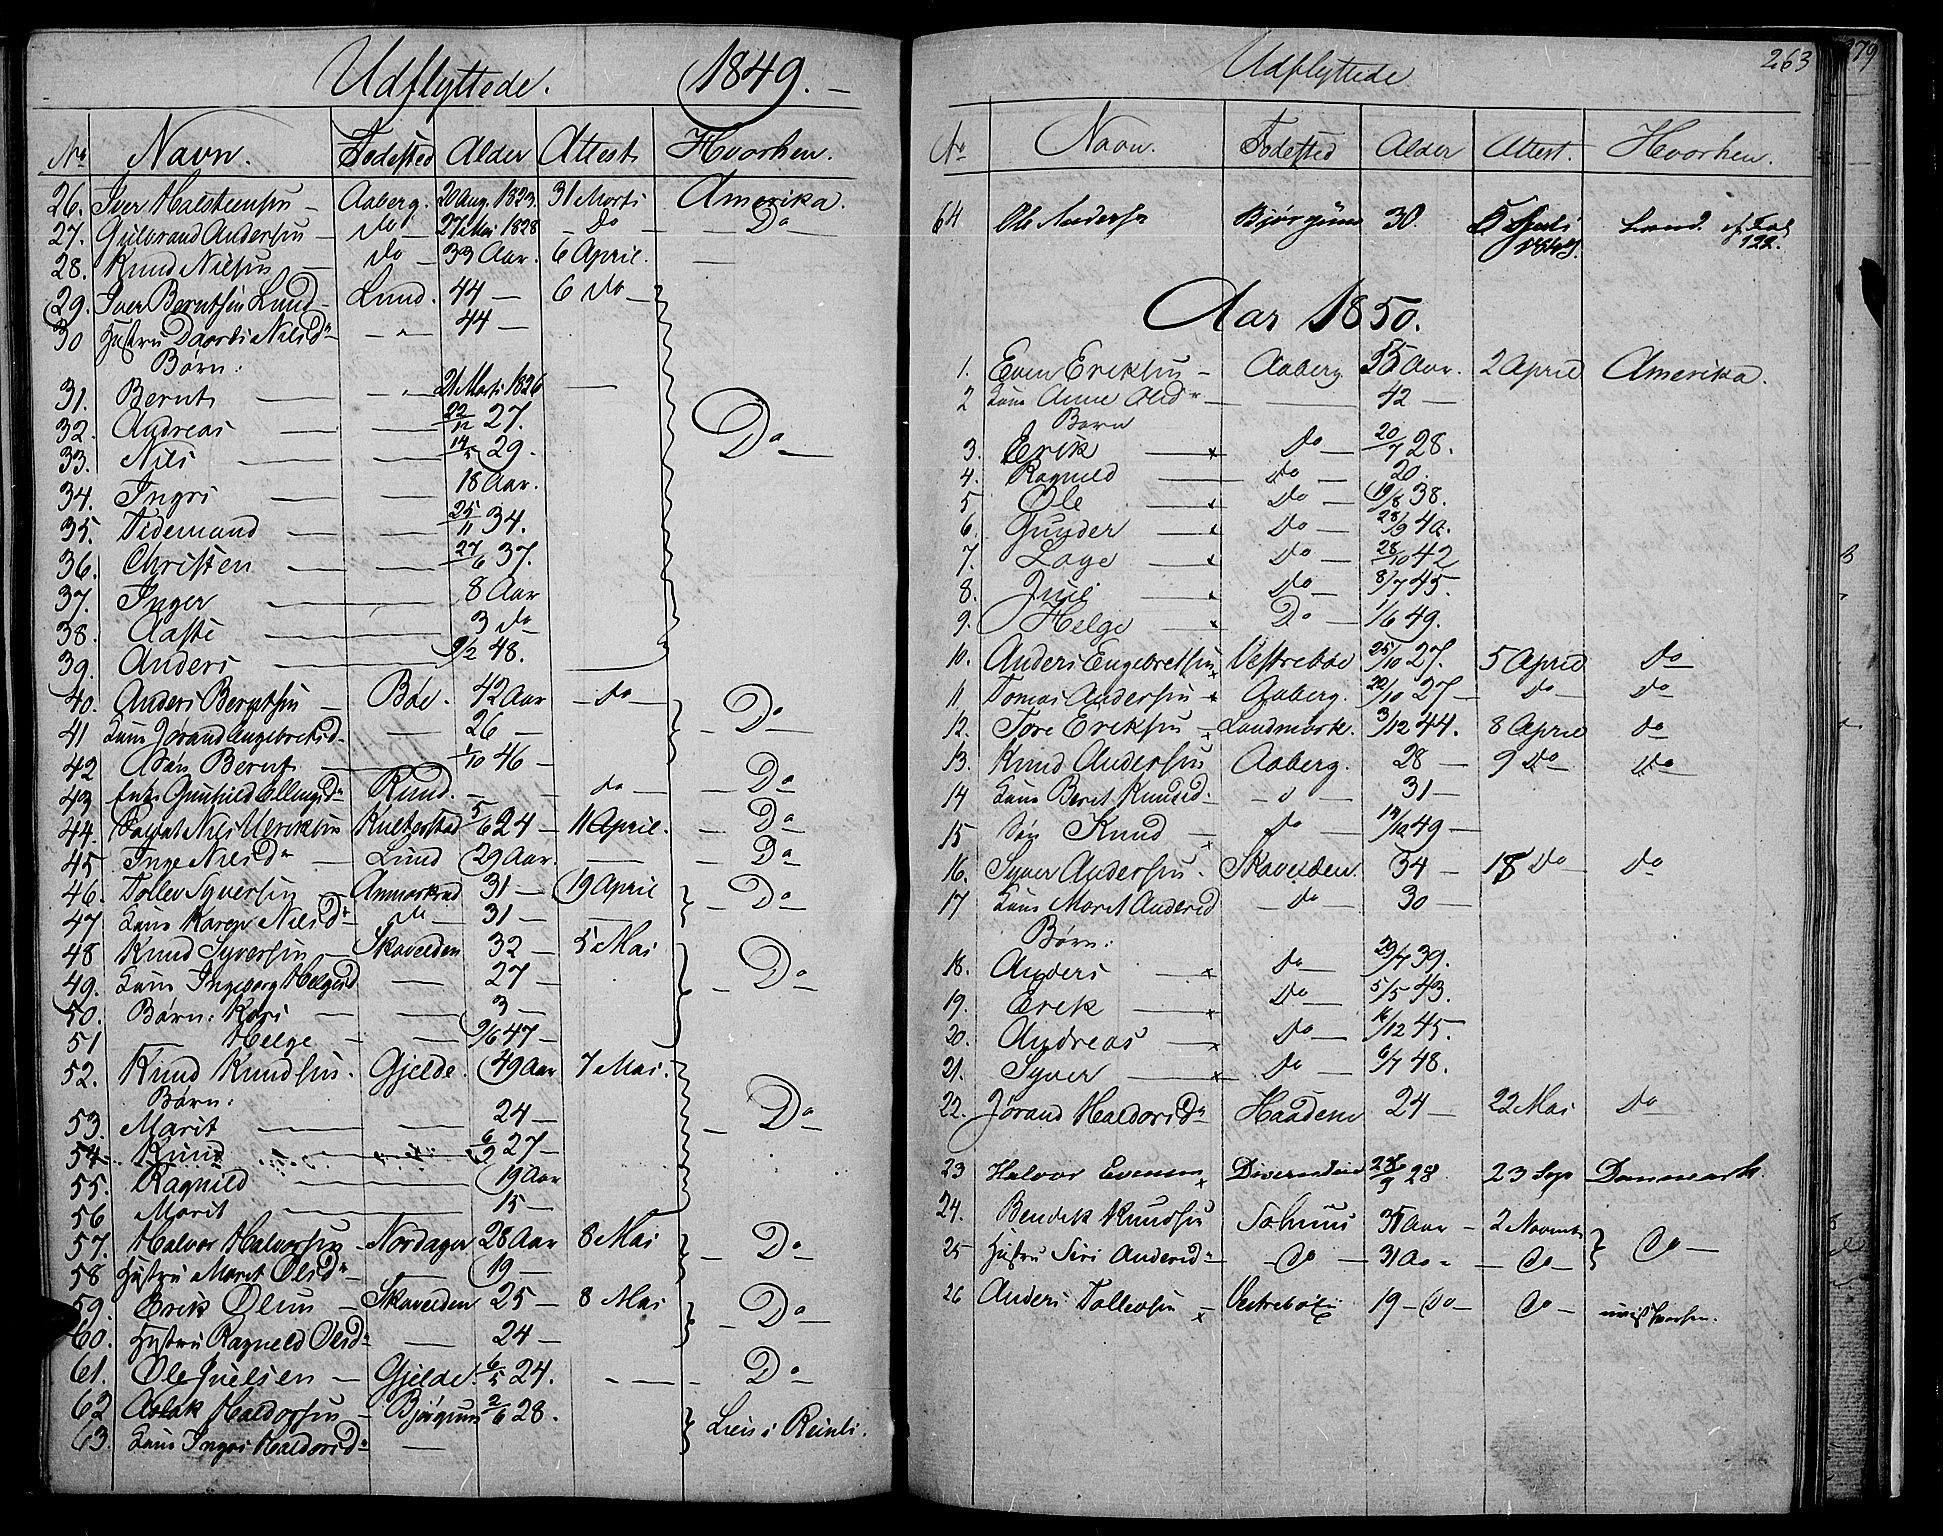 Udflyttede. 1849. —
No Navn. Fødested Alder Attest Hvorhen.
26. Iver Halsteensen — Aaberg. 20 Aug. 1823. 31 Marts Amerika.
27. Gulbrand Andersen — do — 27 Mai 1828 — do — — Do
28. Knud Nilsen — do — 33 Aar. 6 April. —
29. Iver Berntsen Lund — Lund. 44 — 6 do —
30 Hustru Daarti Nilsdr — " — 44 —
Børn:
31. Bernt — — " — 21 Mart 1826 —
32. Andreas — — 22/12 27.
33. Nils — — 14/5 29. Do
34. Ingri — — 18 Aar.
35. Tidemand — — 25/11 34.
36. Christen — — 27/6 37.
37. Inger — — 8 Aar
38. Aaste — — 3 do
39. Anders — — 9/2 48.
40. Anders Berntsen — Bøe. 42 Aar — do — — Do —
41 Kone Jørand Engebretsd. — 26 —
42 Søn Bernt — 1/10 46 —
43 Enke Gunhild Ellingsdr Rund. — — do — — Do
44. Nils Ulriksen Kulterstad 5/6 24 — 11 April. — Do
45. Inge Nilsdr — Lund 29 Aar. — — Do
46. Tollev Syversen — 31 — 19 April — Do —
47 Kone Karen Nilsdr — do — 31 — —
48 Knud Syversen — Skavelden 32 — 5 Mai
49. Kone Ingeborg Helgesd — 27 — — Do —
50. Børn: Kari — — 3 —
51 — Helge — — 9/6 47 —
52. Knud Knudsen. Gjelde. 49 Aar 7 Mai.
Børn:
53. Marit — — 24 — — Do
54. Knud 6/9 27 —
55. Ragnild — 19 Aar
56 Marit — 15 —
57. Halvor Halvorsen — Nordagen 28 Aar 8 Mai — Do —
58 Hustru Marit Olsdr — — 19 —
59. Erik Olsen — Skavelden 25 — 8 Mai — Do —
60. Hustru Ragneld Olsdr — 24 —
61. Ole Juelsen — Gjelde. 6/5 24. — — Do —
62 Aslak Haldorsen — Bjørgum 2/6 28. Lien i Reinli.
63. Kone Ingri Haldorsdr —
263
Udflyttede
No Navn. Fødested Alder Attest. Hvorhen.
64 Ole Andersen Bjørgum 30. 5 Juli Land. cf. Fol
1849. 122.
Aar 1850.
1. Even Eriksen — Aaberg 55 Aar. 2 April Amerika.
2 Kone Anne Olsdr — — 42 —
Børn
3. Erik — x do — 20/7 28.
4. Ragnild — do — 20.
5 Ole — x do — 19/8 38.
6. Gunder — x do — 28/9 40.
7. Lage — x do — 28/10 42
8. Juul — x do — 8/7 45.
9. Helge — x Do — 1/6 49.
10. Anders Engebretsen x Vestrebøe 25/10 27. 5 April do
11 Tomas Andersen — x Aaberg. 22/10 27 — do — do
12. Tore Eriksen — x Landmark. 3/12 44. 8 April do
13. Knud Andersen Aaberg. 28 — 9 do — do
14 Kone Berit Knudsd. — " — 31 —
15 Søn Knud — x do — 14/10 49 —
16. Syver Andersen — Skavelden 34 — 18 do — do
17 Kone Marit Andersd — do — 30 —
Børn:
18. Anders — x do — 29/7 39.
19. Erik — x do — 5/5 43.
20. Andreas — x do — 16/12 45 —
21. Syver — x do — 6/7 48.
22. Jørand Haldorsdr Haadene 24 — 22 Mai do
23 Halvor Evensen x 28/9 28. 23 Sep Danmark.
24. Bendik Knudsen 31 Aar — 2 Novemb
25 Hustru Siri Andersdr — — do — 31 Aar — do — do —
26 Anders Tollevsen — x Vestrebøe 19 — do — do — uvist hvorhen.
279